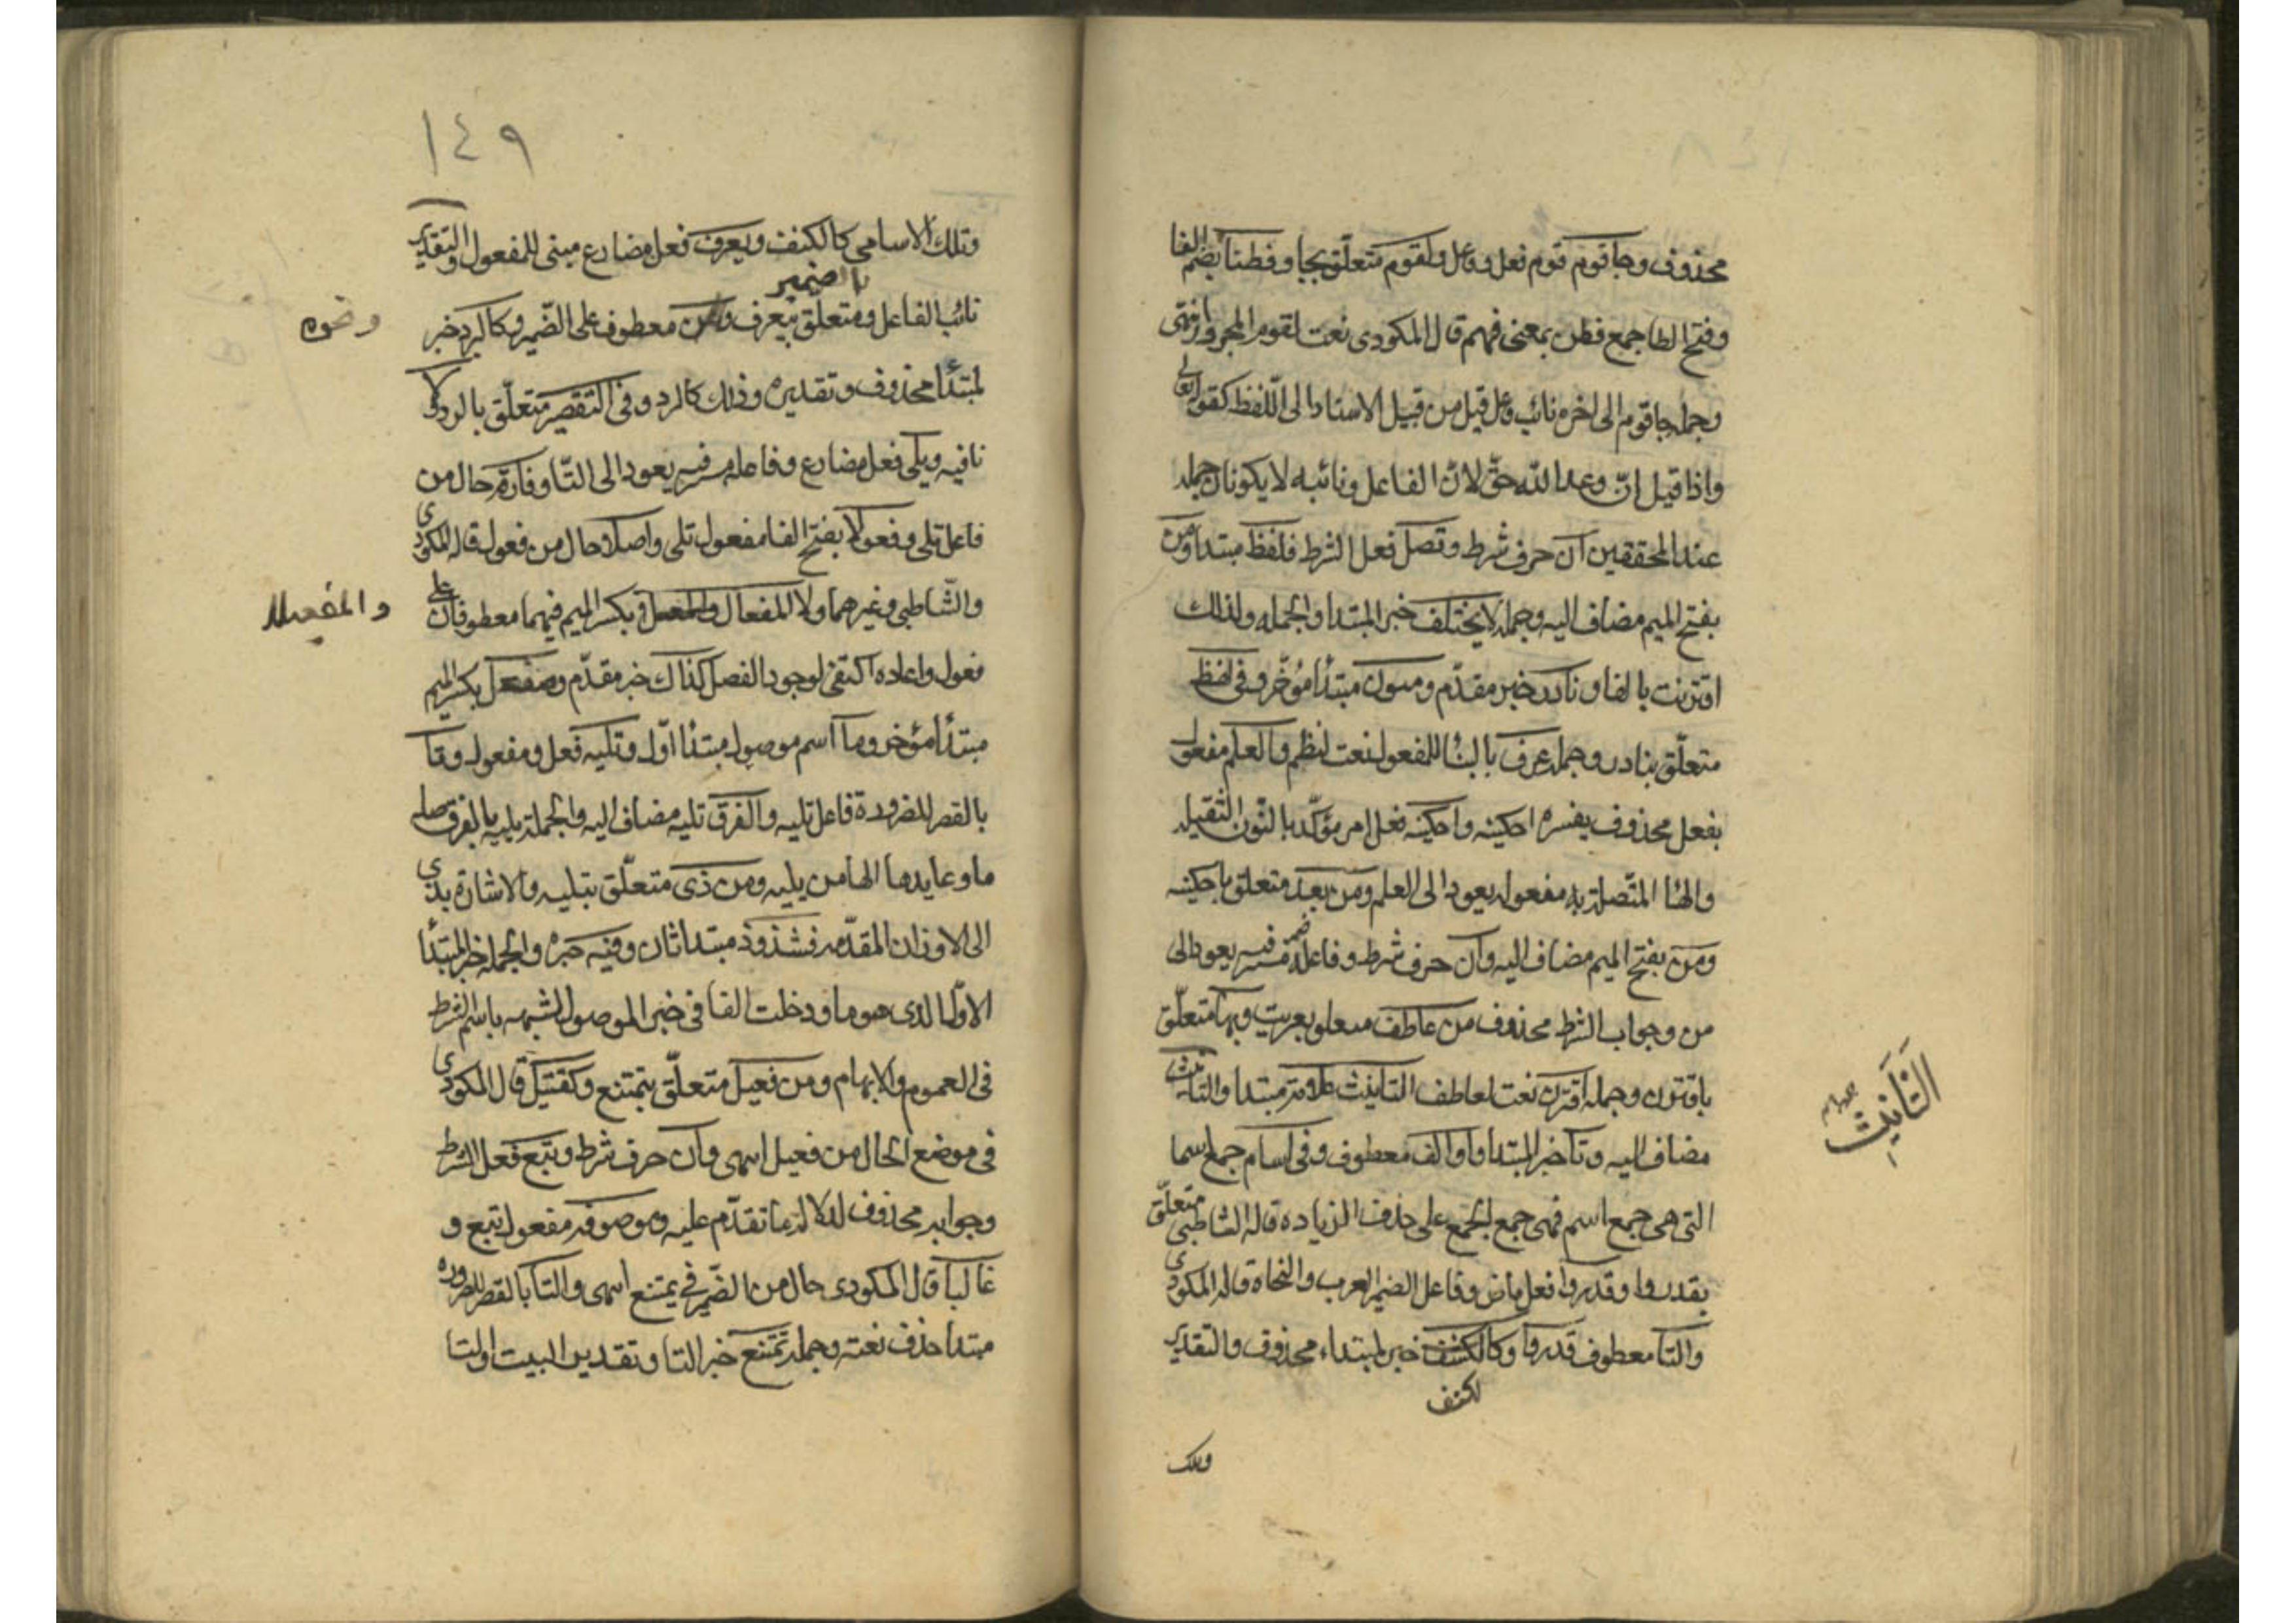 محذوف وجا قوم قوم فعل وفاعل ولقوم متعلق بجا وفطنا بضم الفا
وفتح الطا جمع فطن بمعنى فهم قال المكودى نعت لقوم المجرور انتهى
وجمله جا قوم الى اخره نائب فاعل قيل من قبيل الاسناد الى اللفظ كقوله تعالى
واذا قيل انّ وعد الله حقّ لانّ الفاعل ونائبه لا يكونان جمله
عند المحققين ان حرف شرط وتصل فعل الشرط فلفظ مبتدا ومن
بفتح الميم مضاف اليه وجمله لا يختلف خبر المبتدا والجمله ولذلك
اقترنت بالفا ونادر خبر مقدّم ومنون مبتدأ مؤخّر وفى لفظ
متعلّق بنادر وجمله عرف بالبنا للمفعول نعت لنظم والعلم مفعول
بفعل محذوف يفسره احكينه واحكينه فعل امر مؤكّد بالنّون الثّقيله
والهنا المتّصلة به مفعوله يعود الى العلم ومن بعد متعلق باحكينه
ومن بفتح الميم مضاف اليه وان حرف شرط وفاعله ضمير فيه يعود الى
من وجواب الشرط محذوف من عاطف متعلق بعريت وبها متعلّق
باقترن وجملة اقترن نعت لعاطف التانيث علامة مبتدا والتانيث
مضاف اليه وتا خبر المبتدا او الف معطوف وفى اسام جمع اسما
التى هى جمع اسم فهى جمع الجمع على حذف الزياده قاله الشاطبى متعلّق
بقدروا وقدروا فعل ماض وفاعل الضمير العرب والنحاة قاله المكودى
والتا معطوف قدروا وكالكتف خبر لمبتداء محذوف والتقدير
لكتف
وتلك
التَّانِيث
١٤٩
وتلك الاسامى كالكتف ويعرف فعل مضارع مبنى للمفعول والتقدير
بالضمير
نائب الفاعل ومتعلق بيعرف معطوف على الضّمير وكالرد خبر
ونحوه
لمبتدأ محذوف وتقديره وذلك كالرد وفى التّصغير متعلّق بالرد ولا
نافيه ويلى فعل مضارع وفاعله مستتر فيه يعود الى التّا وفارقة حال من
فاعل تلى وفعولا بفتح الفا مفعول تلى واصلا حال من فعول قاله المكودى
والشّاطبى وغيرهما ولا المفعال والمفعيل بكسر الميم فيهما معطوفان على
والمفعيلا
فعول واعاده اكتفى لوجود الفصل كذاك خبر مقدّم ومفعل بكسر الميم
مبتدأ مؤخر وما اسم موصول مبتدا اوّل وتليه فعل ومفعول وتا
بالقصر للضرورة فاعل تليه والفرق تليه مضاف اليه والجملة يليه بالفرق صلة
ما وعايدها الها من يليه ومن ذى متعلّق بتليه والاشارة بذى
الى الاوزان المقدّمة فشذوذ مبتدا ثان وفيه خبره والجملة خبر المبتدأ
الاوّل الذى هو ما ودخلت الفا فى خبر الموصول لشبهه باسم الشرط
فى العموم والابهام ومن فعيل متعلّق بتمتنع وكقتيل قال المكودى
فى موضع الحال من فعيل انتهى وان حرف شرط وتبع فعل الشرط
وجوابه محذوف لدلالة ما تقدّم عليه وموصوفه مفعول تبع و
غالبا قال المكودى حال من الضّمير فى يمتنع انتهى والتا بالقصر للضروره
مبتدا حذف نعته وجملة تمتنع خبر التا وتقدير البيت اولتا